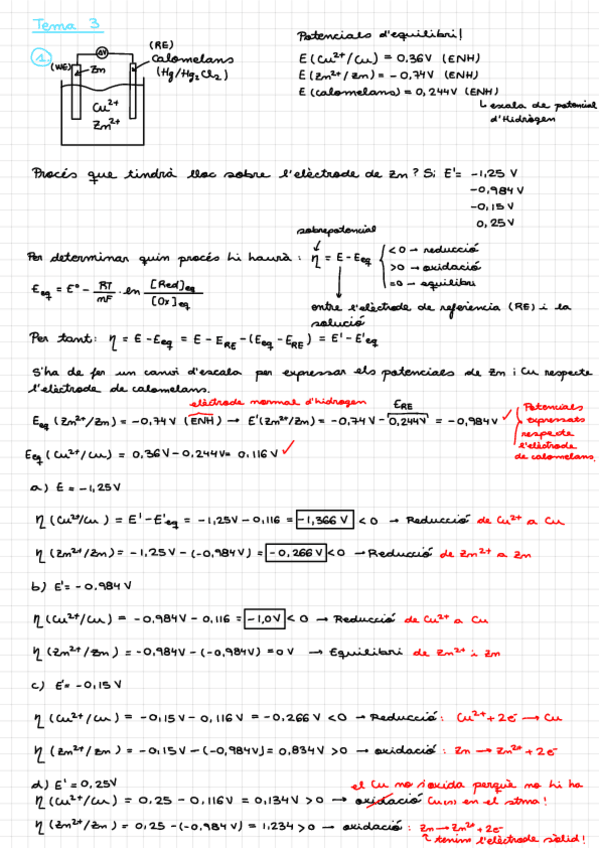 Tema 3
1.
(RE)
calomelans
(Hg/Hg2Cl2)
ΔV
(WE)
Zn
Cu2+
Zn2+
Potencials d'equilibri!
E (Cu2+/Cu) = 0,36V (ENH)
E (Zn2+/Zn) = -0,74V (ENH)
E (calomelans) = 0,244V (ENH)
↳ escala de potencial
d'Hidrògen
Procés que tindrà lloc sobre l'elèctrode de Zn? Si E'= -1,25 V
-0,984V
-0,15 V
0,25V
sobrepotencial
Per determinar quin procés hi haurà: η = E - Eeq
<0 → reducció
>0 → oxidació
=0 → equilibri
Eeq = E° - RT/nF · ln [Red]eq/[Ox]eq
entre l'elèctrode de referència (RE) i la
solució
Per tant: η = E - Eeq = E - ERE - (Eeq - ERE) = E' - E'eq
S'ha de fer un canvi d'escala per expressar els potencials de Zn i Cu respecte
l'elèctrode de calomelans.
elèctrode normal d'hidrogen
ERE
Eeq (Zn2+/Zn) = -0,74V (ENH) → E'(Zn2+/Zn) = -0,74V - 0,244V = -0,984V ✓
Potencials
expressats
respecte
l'elèctrode
de calomelans.
Eeq (Cu2+/Cu) = 0,36V - 0,244V = 0,116V ✓
a) E = -1,25V
η (Cu2+/Cu) = E' - E'eq = -1,25V - 0,116 = -1,366 V < 0 → Reducció de Cu2+ a Cu
η (Zn2+/Zn) = -1,25V - (-0,984V) = -0,266V < 0 → Reducció de Zn2+ a Zn
b) E' = -0.984V
η (Cu2+/Cu) = -0,984V - 0,116 = -1,0V < 0 → Reducció de Cu2+ a Cu
η (Zn2+/Zn) = -0,984V - (-0,984V) = 0V → Equilibri de Zn2+ i Zn
c) E' = -0,15V
η (Cu2+/Cu) = -0,15V - 0,116V = -0,266V < 0 → Reducció: Cu2+ + 2e- → Cu
η (Zn2+/Zn) = -0,15V - (-0,984V) = 0,834V > 0 → oxidació: Zn → Zn2+ + 2e-
d) E' = 0,25V
el Cu no s'oxida perquè no hi ha
η (Cu2+/Cu) = 0,25 - 0,116V = 0,134V > 0 → oxidació Cu(s) en el stma!
η (Zn2+/Zn) = 0,25 - (-0,984V) = 1,234 > 0 → oxidació: Zn → Zn2+ + 2e-
tenim l'elèctrode sòlid!